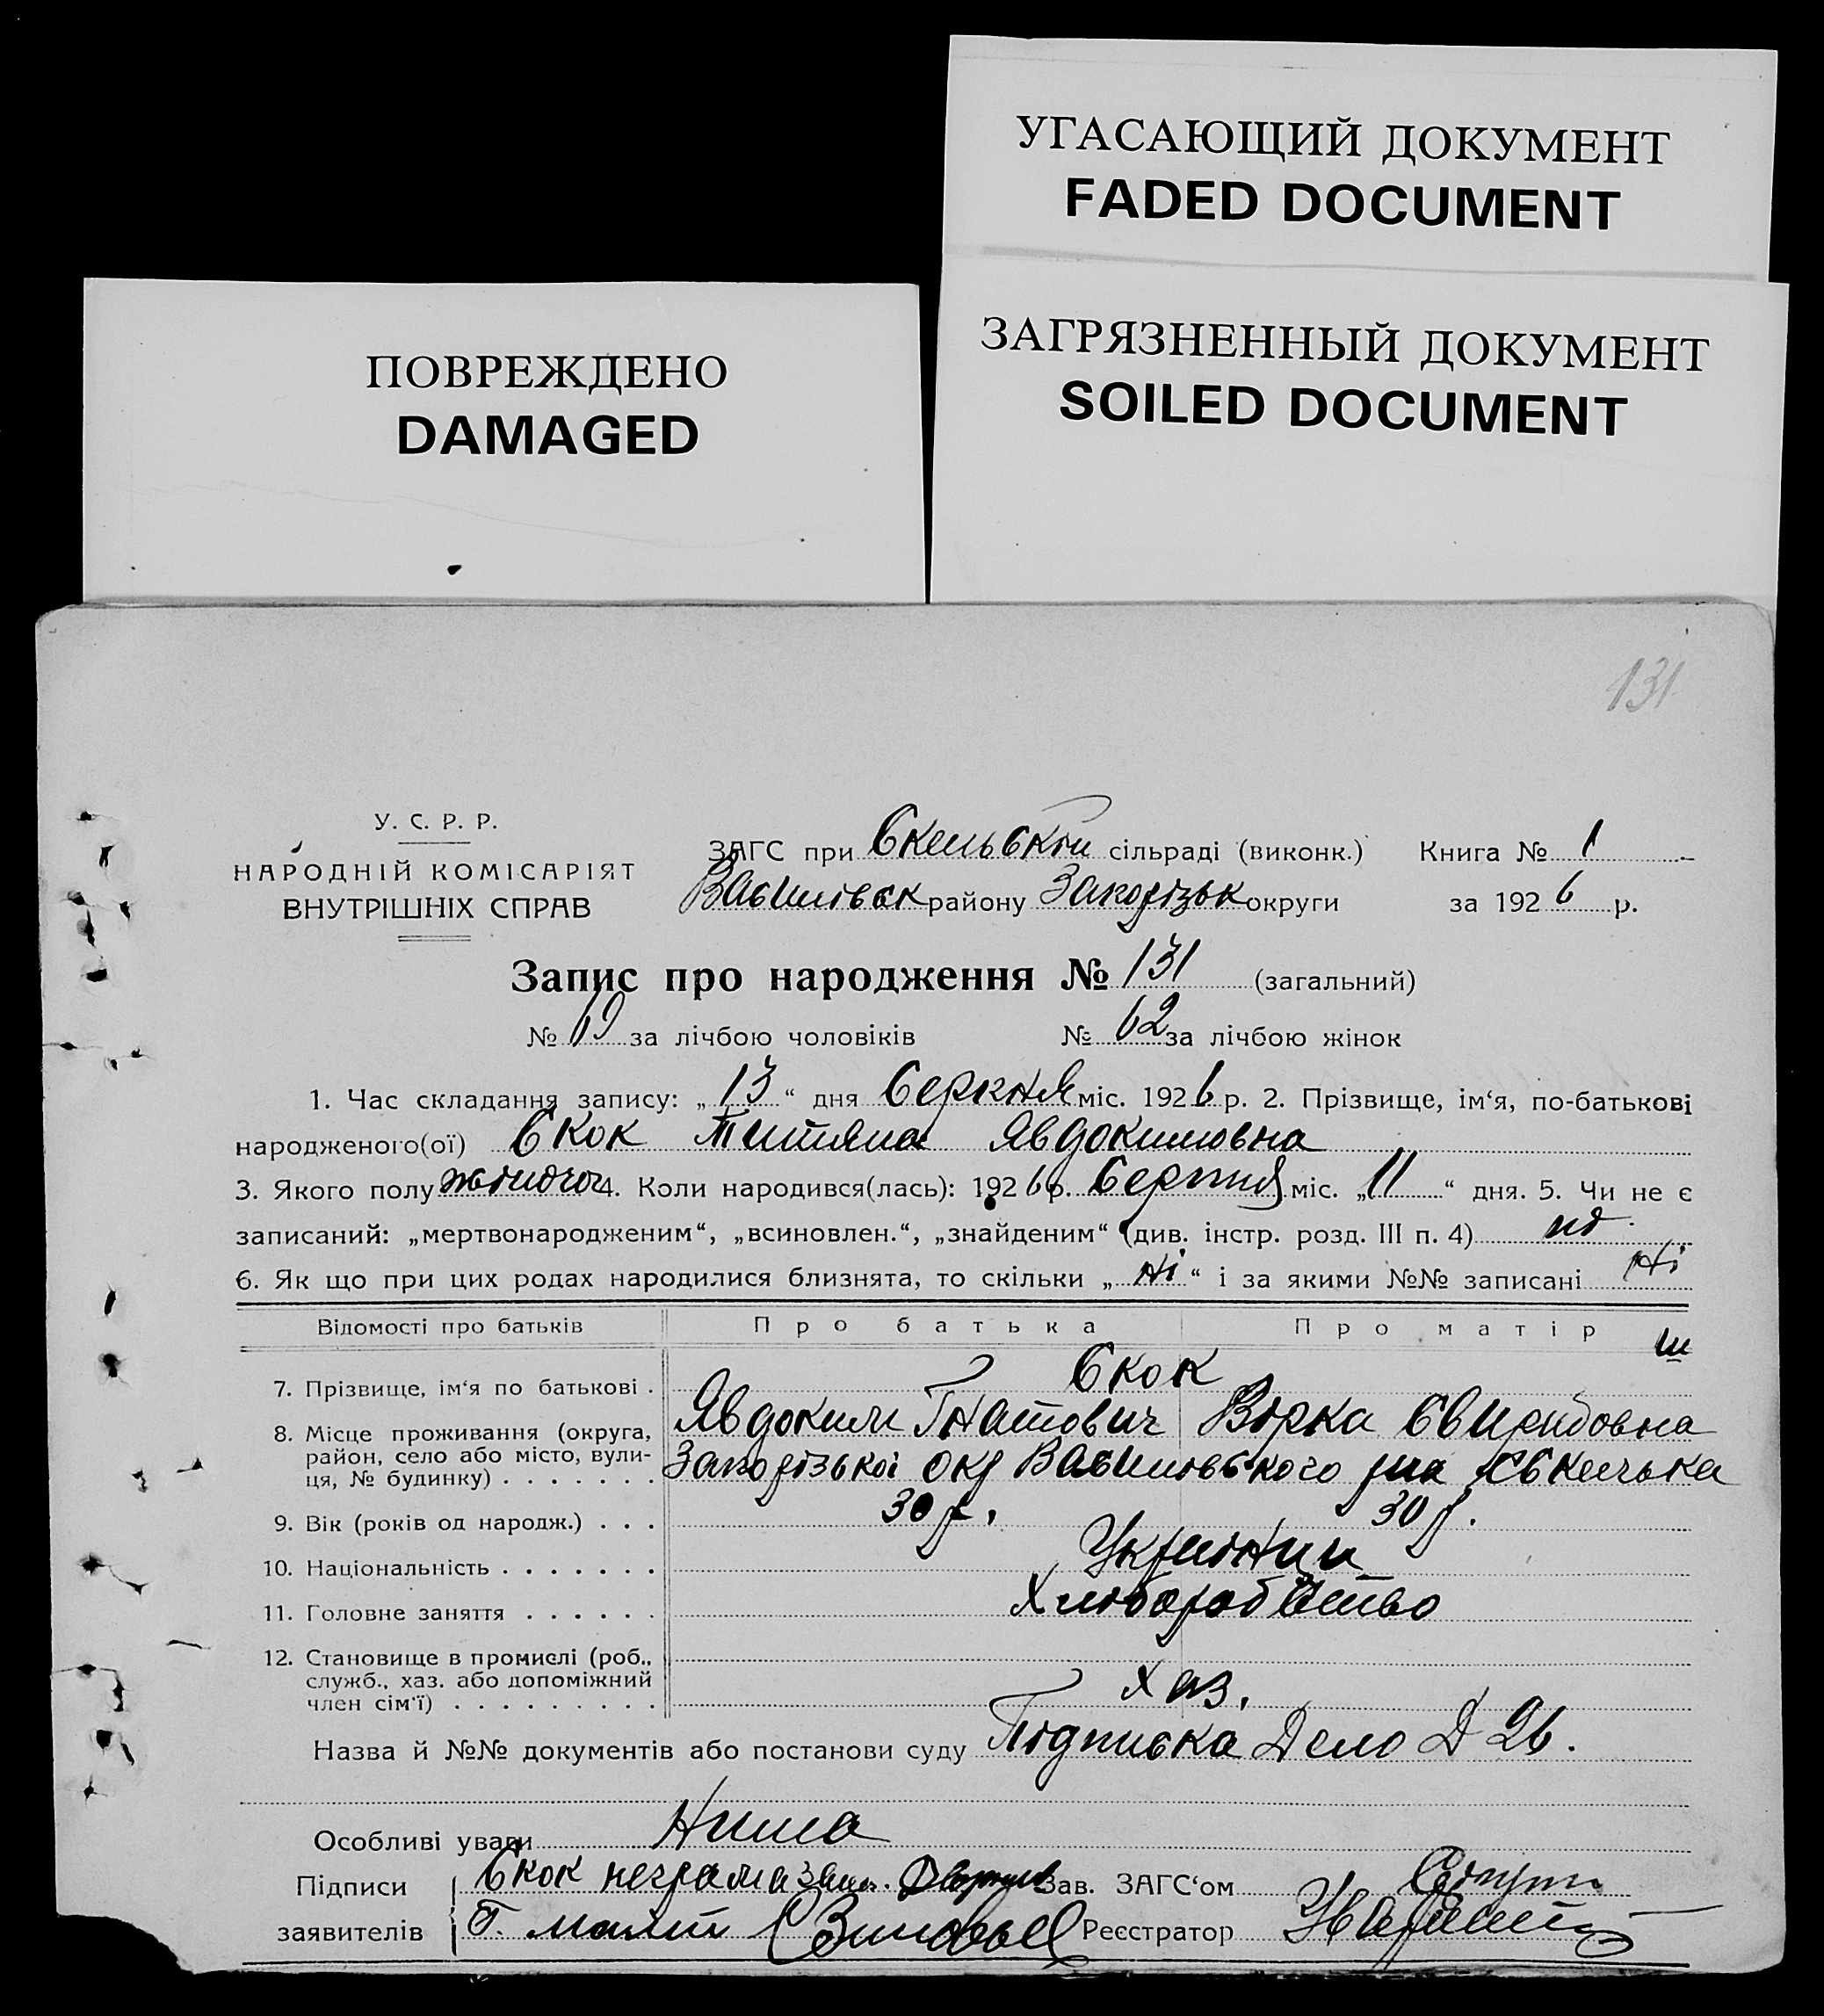 УГАСАЮЩИЙ ДОКУМЕНТ
FADED DOCUMENT
ЗАГРЯЗНЕННЫЙ ДОКУМЕНТ
SOILED DOCUMENT
ПОВРЕЖДЕНО
DAMAGED
131
У. С. Р. Р.
НАРОДНІЙ КОМІСАРІЯТ
ВНУТРІШНІХ СПРАВ
ЗАГС при Скельскій сільраді (виконк.) Книга № 1
Василівск району Запорізьк округи за 1926 р.
Запис про народження № 131 (загальний)
№ 69 за лічбою чоловіків № 62 за лічбою жінок
1. Час складання запису: „13“ дня Серкня міс. 1926 р. 2. Прізвище, ім‘я, по-батькові
народженого(ої) Скок Титяна Явдокимовна
3. Якого полу жіночого 4. Коли народився(лась): 1926 р. Серпня міс. „11“ дня. 5. Чи не є
записаний: „мертвонародженим“, „всиновлен.“, „знайденим“ (див. інстр. розд. III п. 4) ні
6. Як що при цих родах народилися близнята, то скільки „ні“ і за якими №№ записані ні
Відомості про батьків Про батька Про матір
7. Прізвище, ім‘я по батькові . Скок
Явдоким Гнатович Вірка Свиридовна
8. Місце проживання (округа,
район, село або місто, вули-
ця, № будинку) . . . . . . . Запорізької окр Василівського рна
9. Вік (років од народж.) . . . 30 р. 30 р.
10. Національність . . . . . . . Українци
11. Головне заняття . . . . . . Хліборобство
12. Становище в промислі (роб.,
служб., хаз. або допоміжний
член сім‘ї) . . . . . . . . . хаз.
Назва й №№ документів або постанови суду Підписка Дело Д 26.
Особливі уваги Нима
Підписи Скок неграма Зав. ЗАГС‘ом
заявителів Реєстратор